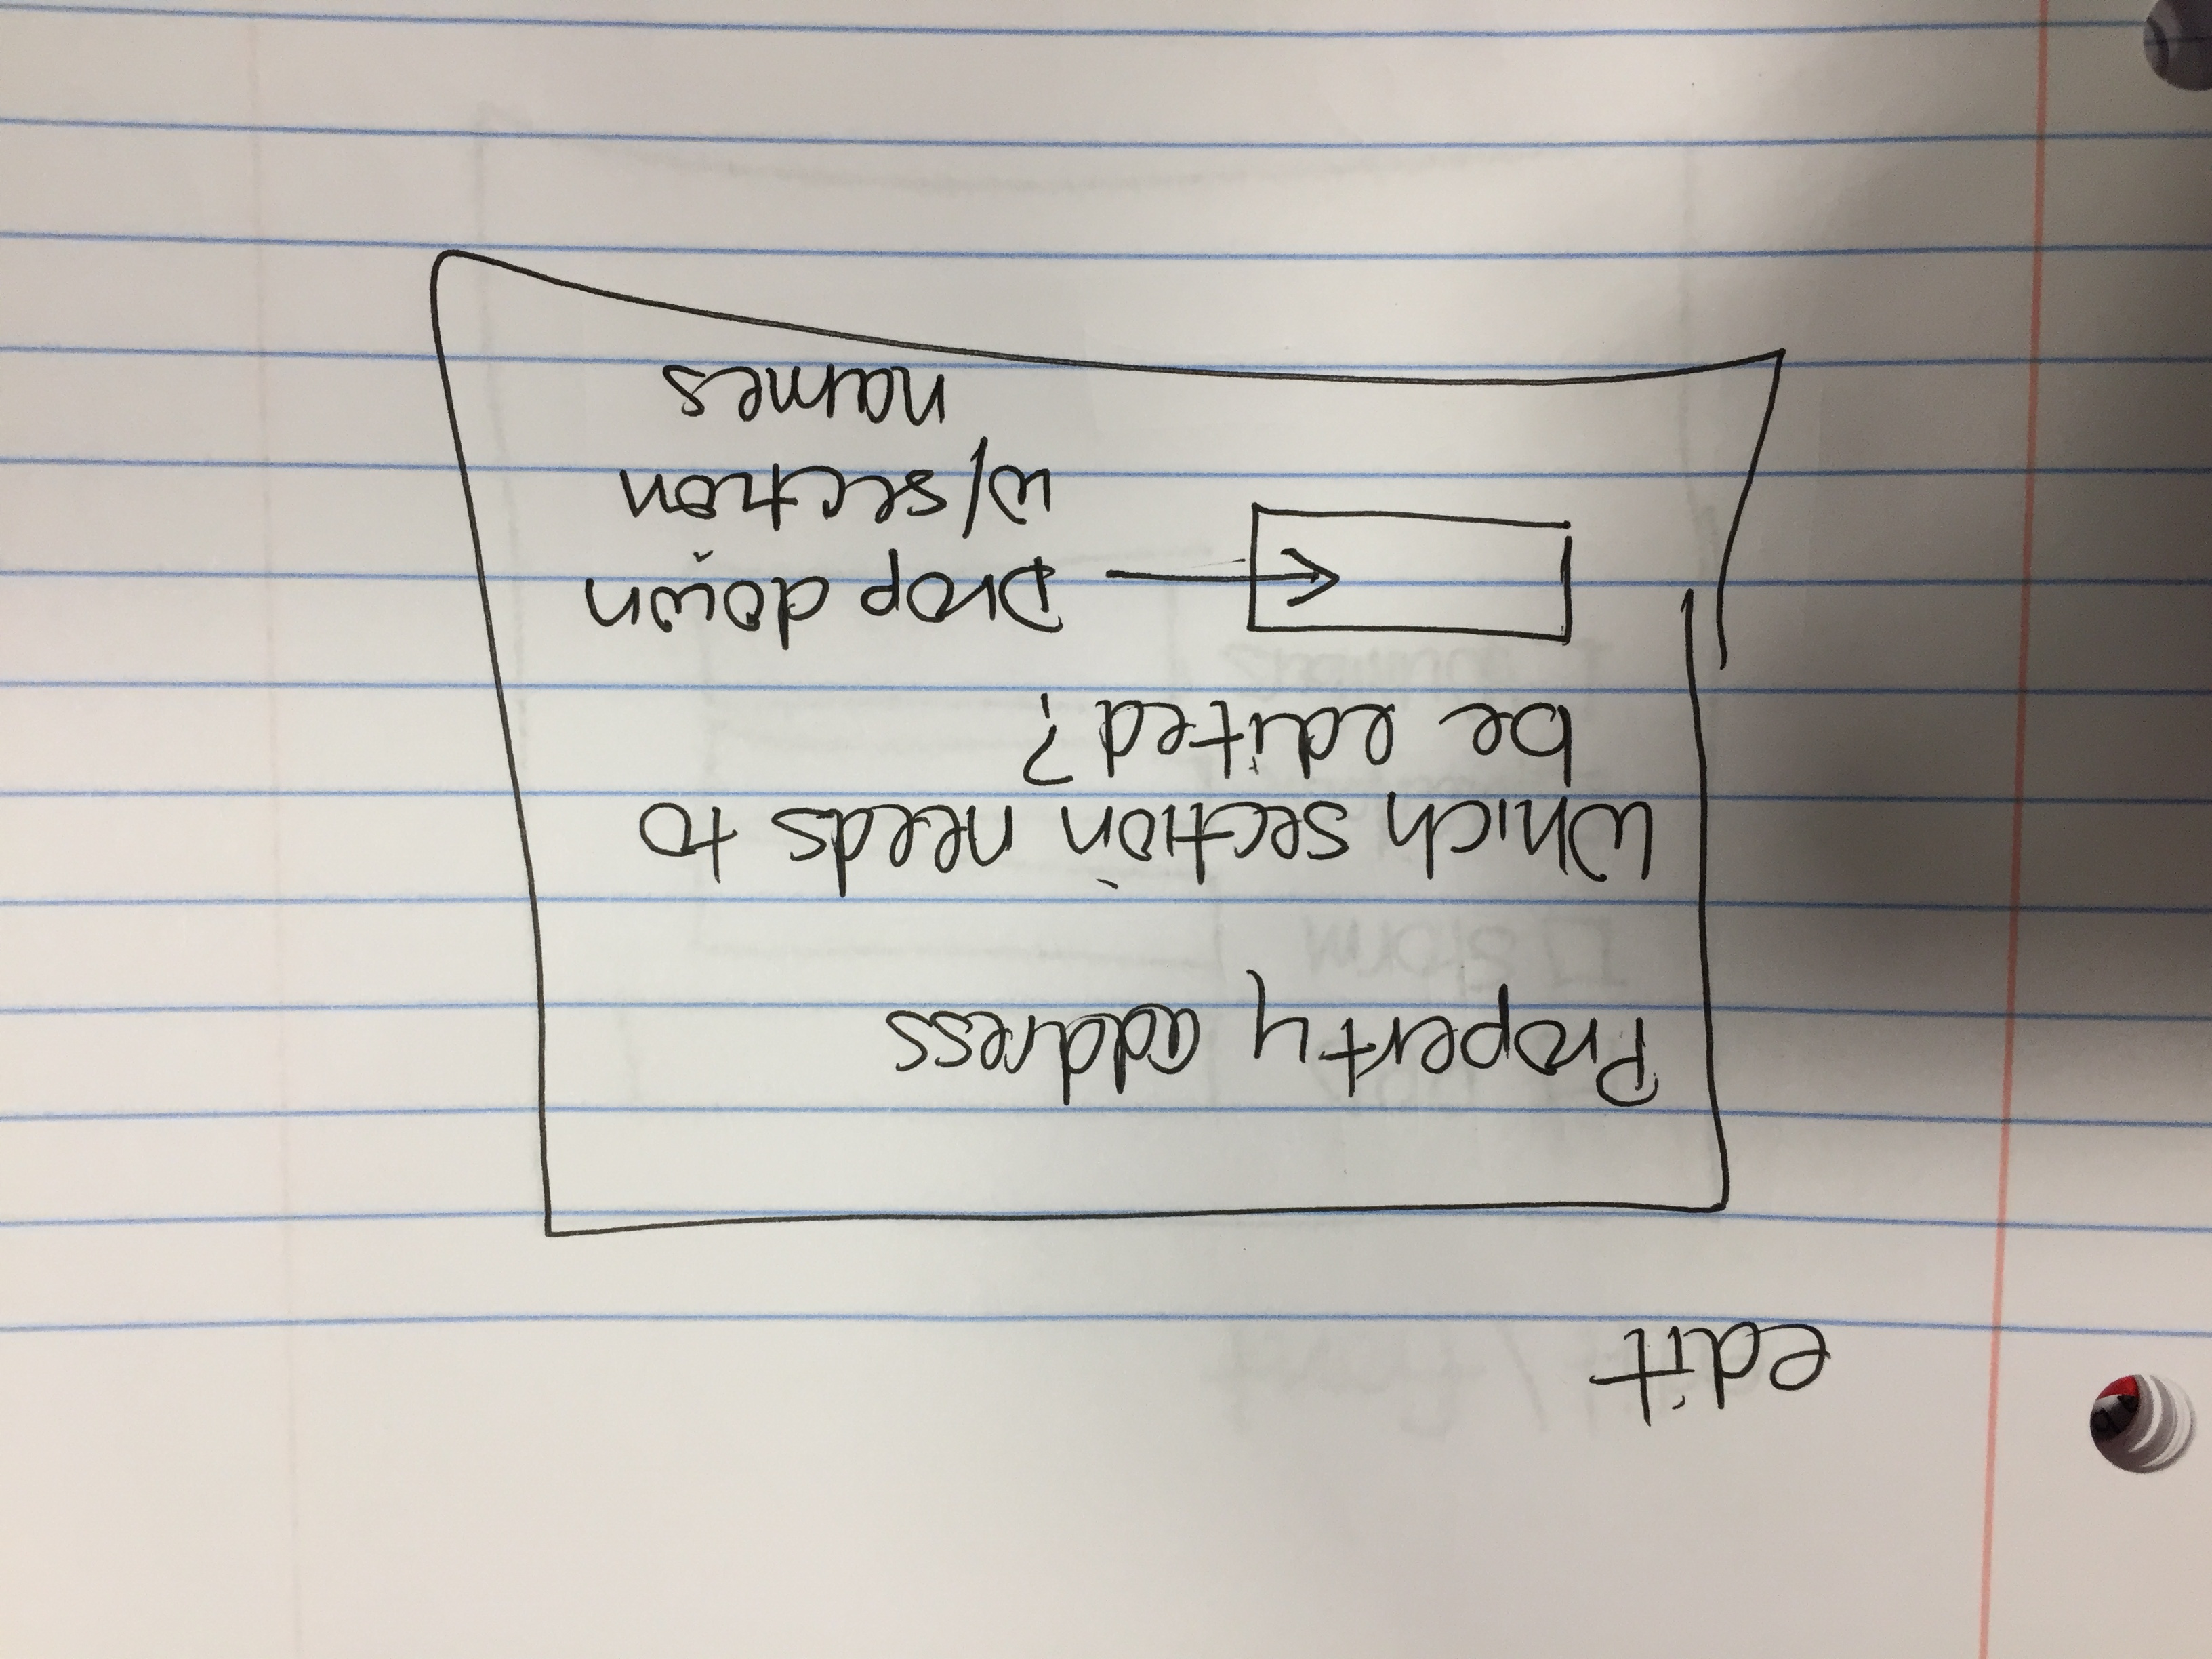 edit
Property address
Which section needs to
be edited?
Drop down
w/section
names